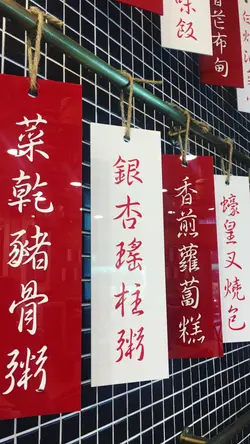 菜乾豬骨粥
銀杏瑤柱粥
香煎蘿蔔糕
蠔皇叉燒包
味飯
香芒布甸